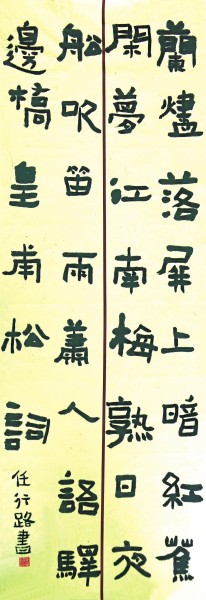 蘭燼落屏上暗紅蕉
閑夢江南梅熟日夜
船吹笛雨蕭人語驛
邊橋皇甫松詞
任行路書